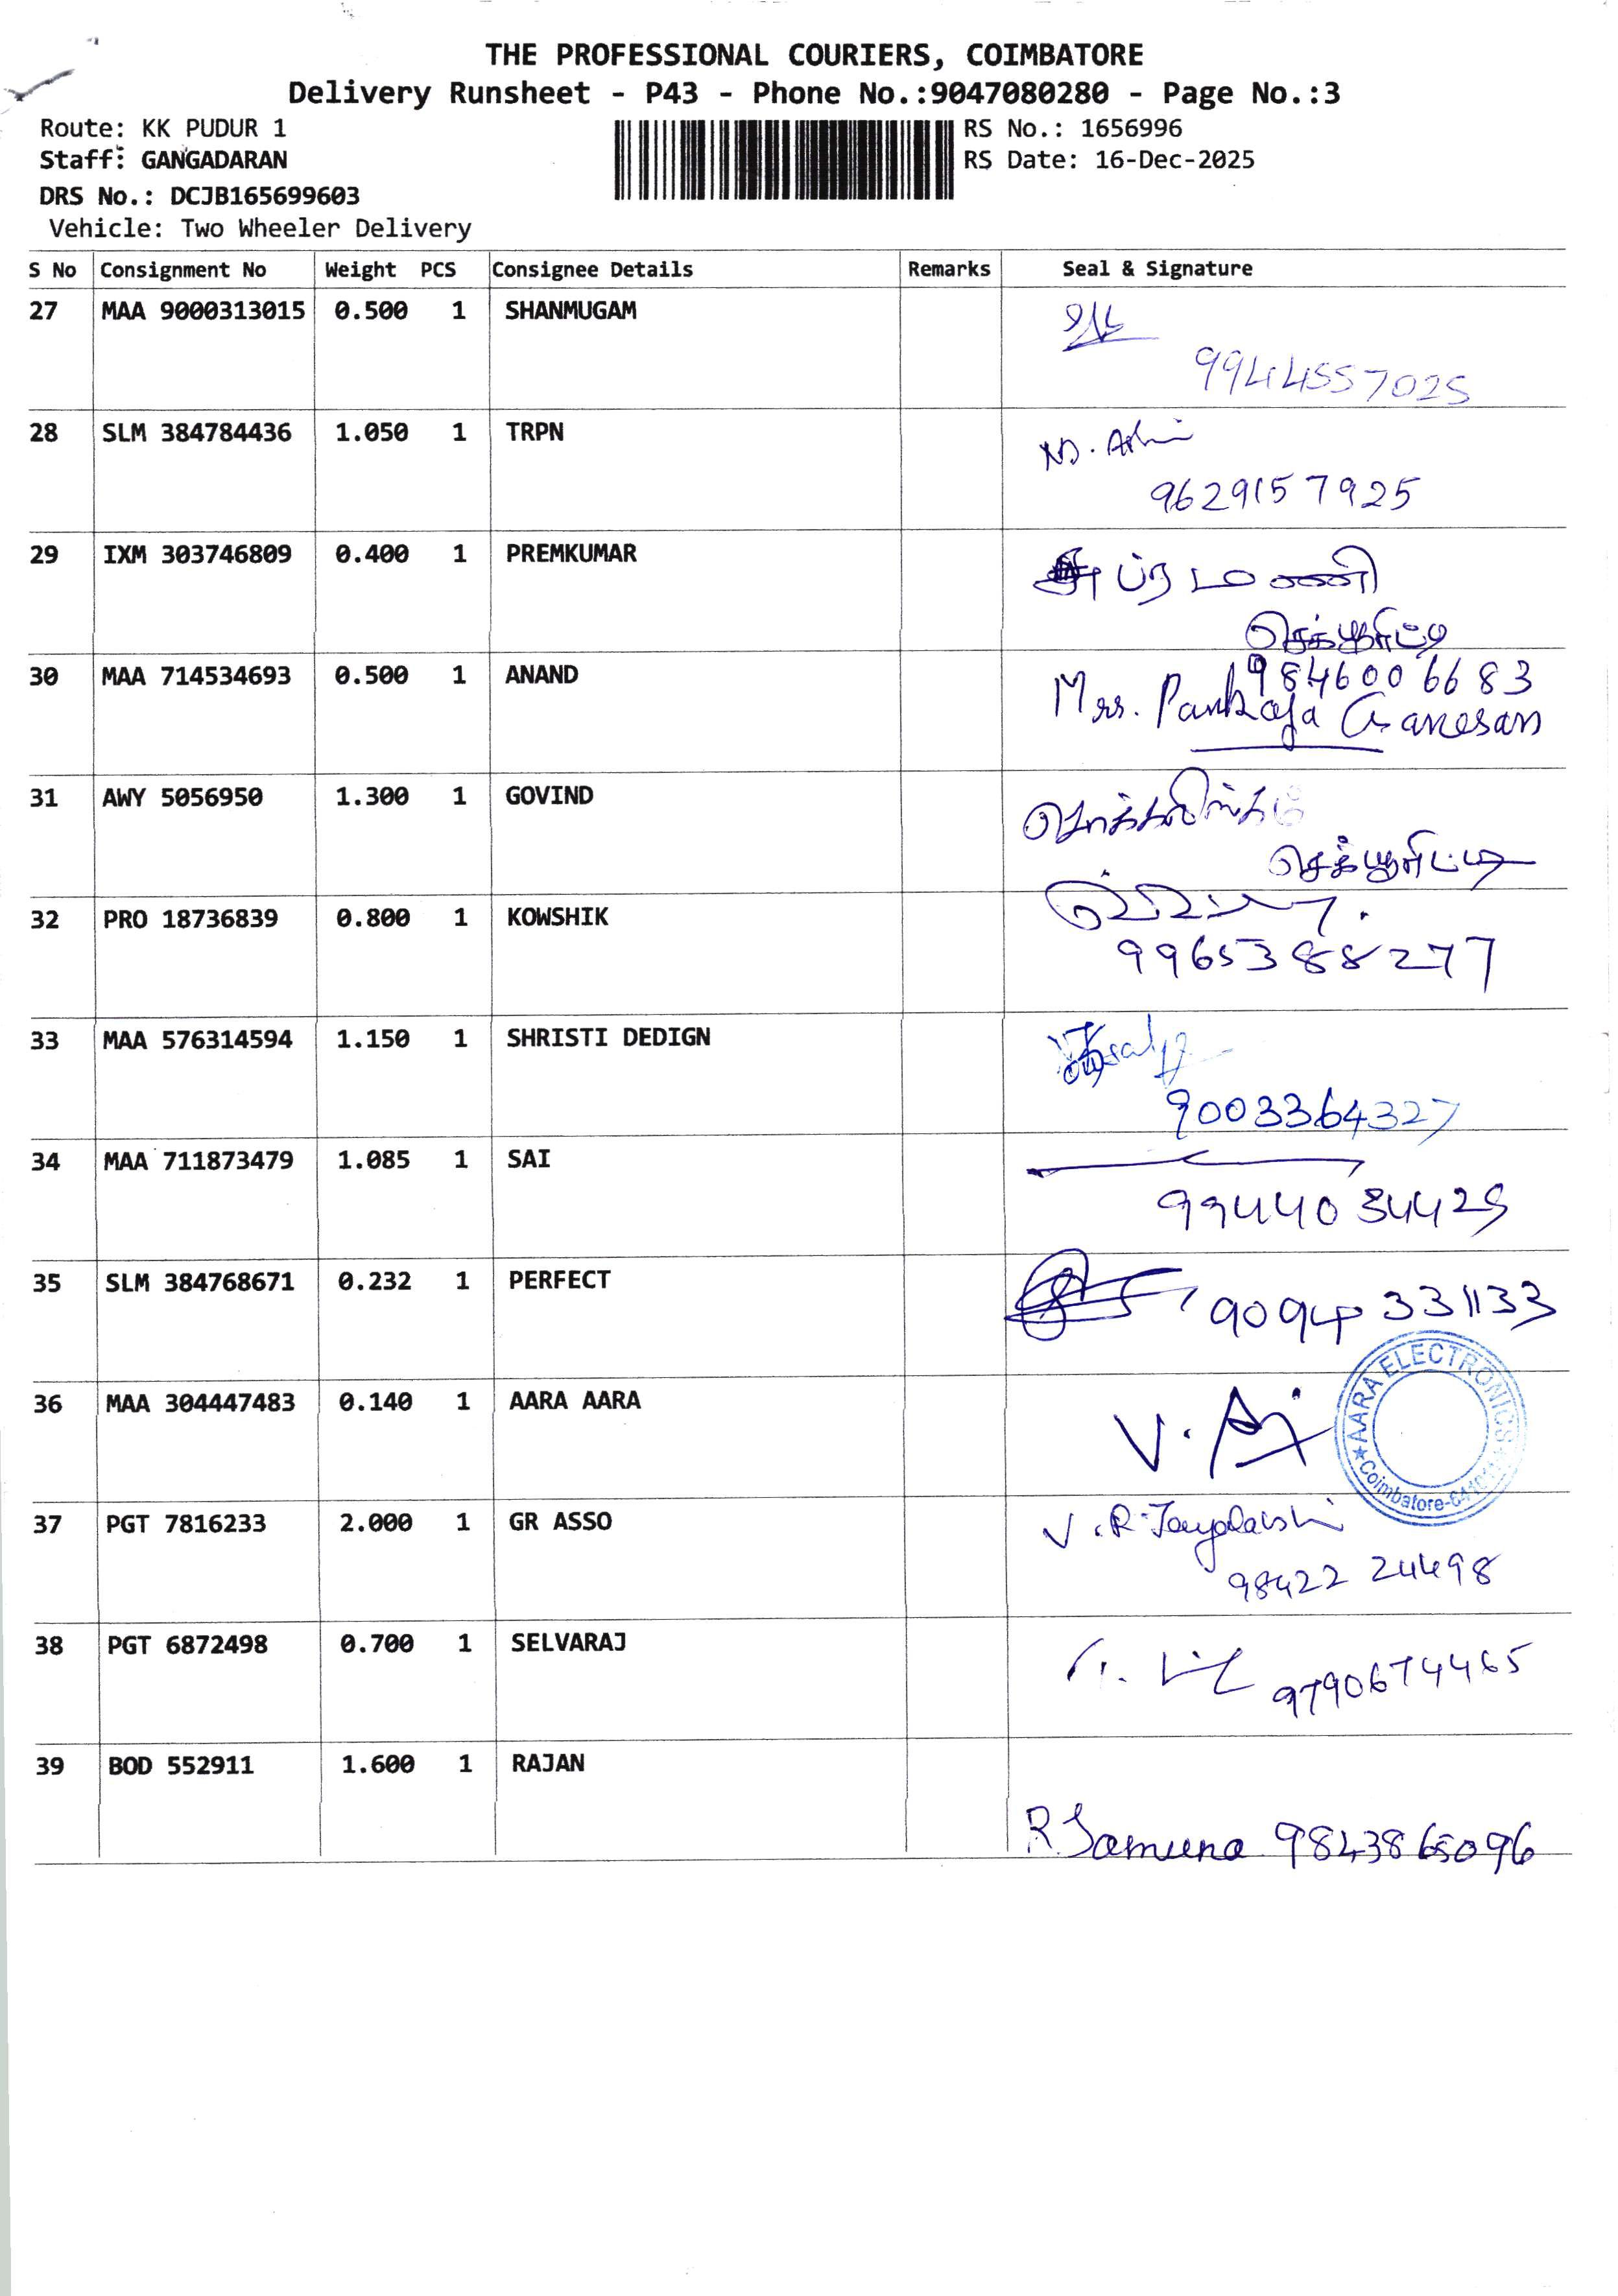 THE PROFESSIONAL COURIERS, COIMBATORE
Delivery Runsheet - P43 - Phone No.:9047080280 - Page No.:3
Route: KK PUDUR 1
RS No.: 1656996
Staff: GANGADARAN
RS Date: 16-Dec-2025
DRS No.: DCJB165699603
Vehicle: Two Wheeler Delivery
S No Consignment No Weight PCS Consignee Details Remarks Seal & Signature
27 MAA 9000313015 0.500 1 SHANMUGAM
9944557025
28 SLM 384784436 1.050 1 TRPN
9629157925
29 IXM 303746809 0.400 1 PREMKUMAR
செக்யூரிட்டி
30 MAA 714534693 0.500 1 ANAND
9846006683
Mrs. Pankaja Ganesan
31 AWY 5056950 1.300 1 GOVIND
சொக்கலிங்கம்
செக்யூரிட்டி
32 PRO 18736839 0.800 1 KOWSHIK
9965388277
33 MAA 576314594 1.150 1 SHRISTI DEDIGN
9003364327
34 MAA 711873479 1.085 1 SAI
9944034429
35 SLM 384768671 0.232 1 PERFECT
9094331133
36 MAA 304447483 0.140 1 AARA AARA
AARA ELECTRONICS
Coimbatore-
37 PGT 7816233 2.000 1 GR ASSO
V.R.
98422 24498
38 PGT 6872498 0.700 1 SELVARAJ
9790674465
39 BOD 552911 1.600 1 RAJAN
R Jamuna 9843865096